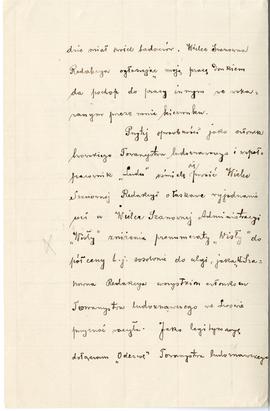 dzie miał wśród badaczów. Wielce Szanowna
Redakcya ogłaszając moją pracę drukiem
da podnop do pracy innym we wska-
zanym przeze mnie kierunku.
Przytej sposobności jako członek
lwowskiego Towarzystwa ludoznawczego i współ-
pracownik "Ludu" ośmielę się prosić Wielce
Szanownej Redakcyi o łaskawe wyjednanie
mi w Wielce Szanownej "Administracyi
Wisły" zniżenia prenumeraty "Wisły" do
pół ceny t. j. stosownie do ulgi, jaką Sza-
nowna Redakcya wszystkim członkom
Towarzystwa ludoznawczego we Lwowie
przyznać raczyła. Jako legitymacyę
dołączam "Odezwę" Towarzystwa ludoznawczego